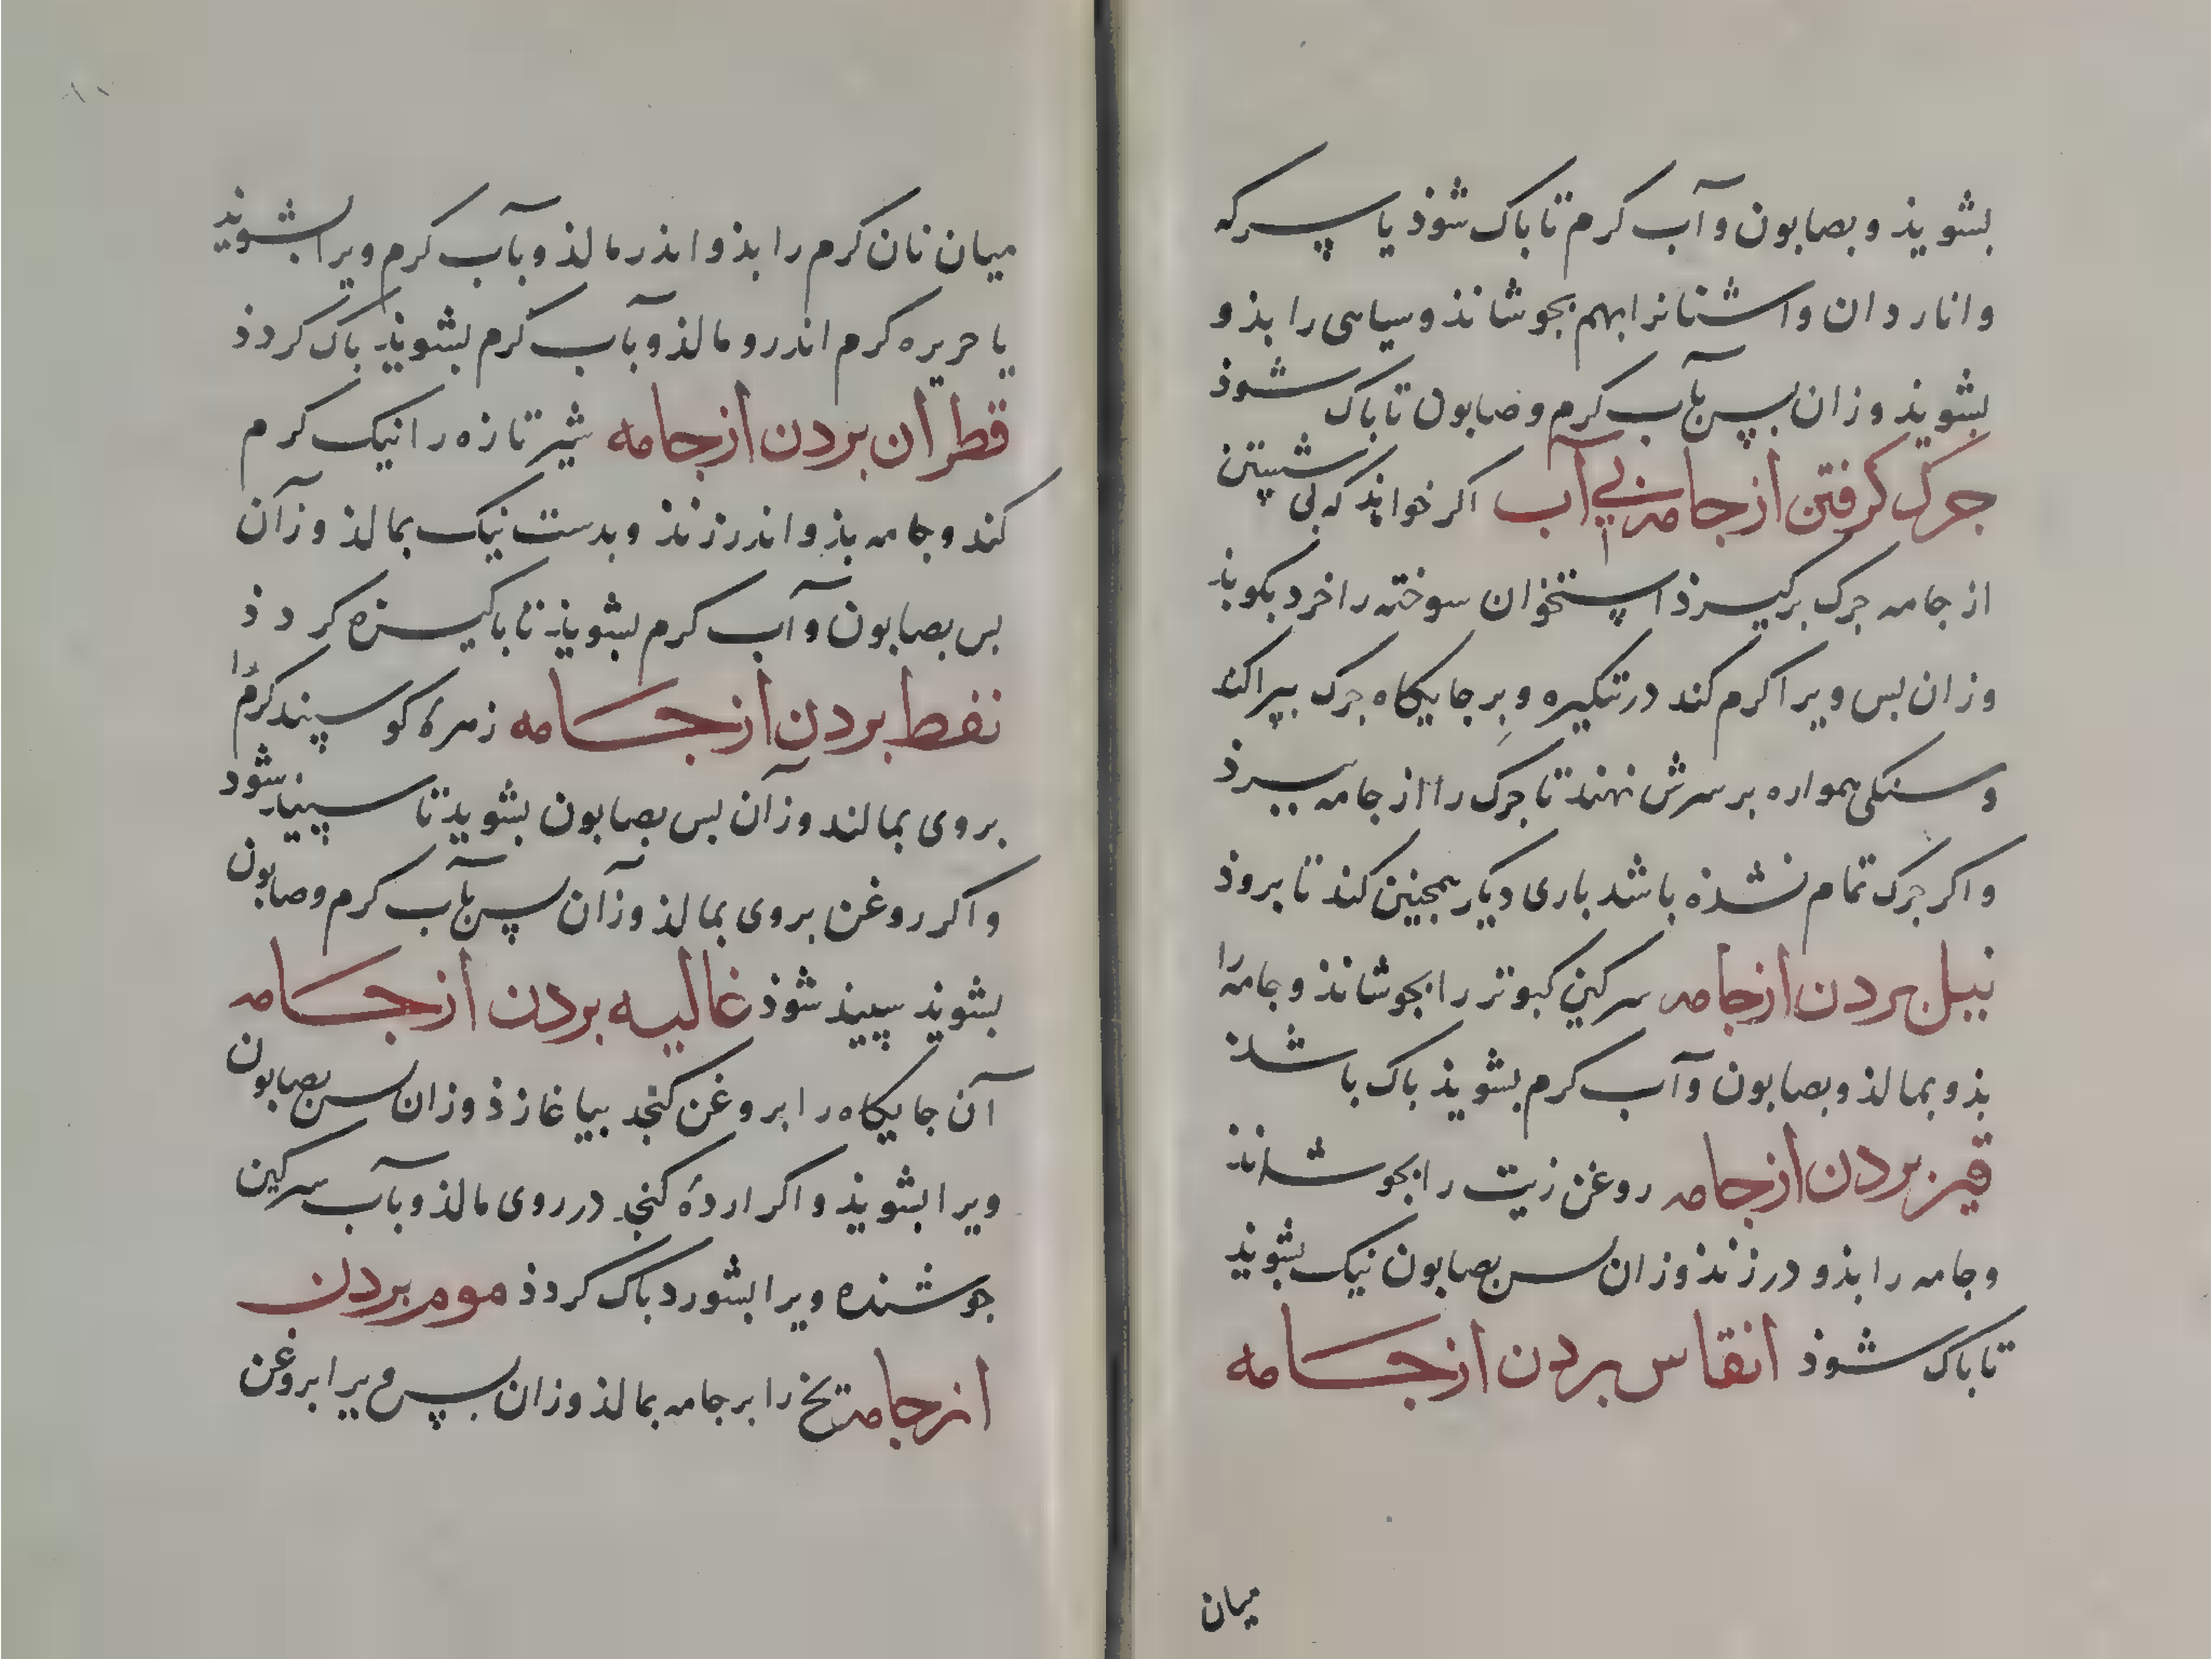 بشویذ و بصابون و آب کرم تا باک شوذ یا سرکه
و انار دان و اشنانرا بهم بجوشانذ و سیاهی را بذو
بشویذ وزان پس بآب کرم و صابون تا باک شوذ
جرک کرفتن از جامه بی آب اکر خواهذ که بی شستن
از جامه جرک برکیرذ استخوان سوخته را خرد بکوبذ
وزان بس ویرا کرم کند در تنکیره و بر جایکاه جرک بپراکند
و سنکی همواره بر سرش نهند تا جرک را از جامه ببرذ
و اکر جرک تمام نشذه باشد باری دیکر همجنین کند تا بروذ
نیل بردن از جامه سرکین کبوتر را بجوشانذ و جامه را
بذو بمالذ و بصابون و آب کرم بشویذ باک باشذ
قیر بردن از جامه روغن زیت را بجوشانذ
و جامه را بذو در زنذ وزان پس بصابون نیک بشویذ
تا باک شوذ انقاس بردن از جامه
میان
میان نان کرم را بذو اندر مالذ و بآب کرم ویرا بشویذ
یا حریره کرم اندرو مالذ و بآب کرم بشویذ باک کردذ
قطران بردن از جامه شیر تازه را نیک کرم
کند و جامه بذو اندر زنذ و بدست نیک بمالذ وزآن
بس بصابون و آب کرم بشویذ تا باکیزه کردذ
نفط بردن از جامه زهرهٔ کوسپند کرم را
بروی بمالند وزآن بس بصابون بشوید تا سپیذ شود
و اکر روغن بروی بمالذ وزآن پس بآب کرم و صابون
بشوید سپیذ شوذ غالیه بردن از جامه
آن جایکاه را بروغن کنجد بیاغازذ وزان پس بصابون
ویرا بشویذ و اکر اردهٔ کنجد در روی مالذ و بآب سرکین
جوشنده ویرا بشورد باک کردذ موم بردن
از جامه یخ را بر جامه بمالذ وزان پس ویرا بروغن